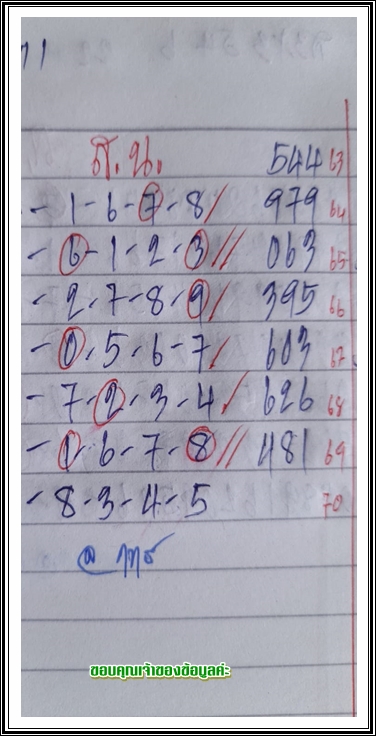 71
ศ.น. 544 63
- 1 - 6 - 7 - 8 / 979 64
- 6 - 1 - 2 - 3 // 063 65
- 2 - 7 - 8 - 9 / 395 66
- 0 - 5 - 6 - 7 / 603 67
- 7 - 2 - 3 - 4 / 626 68
- 1 - 6 - 7 - 8 // 481 69
- 8 - 3 - 4 - 5 70
ขอบคุณเจ้าของข้อมูลค่ะ